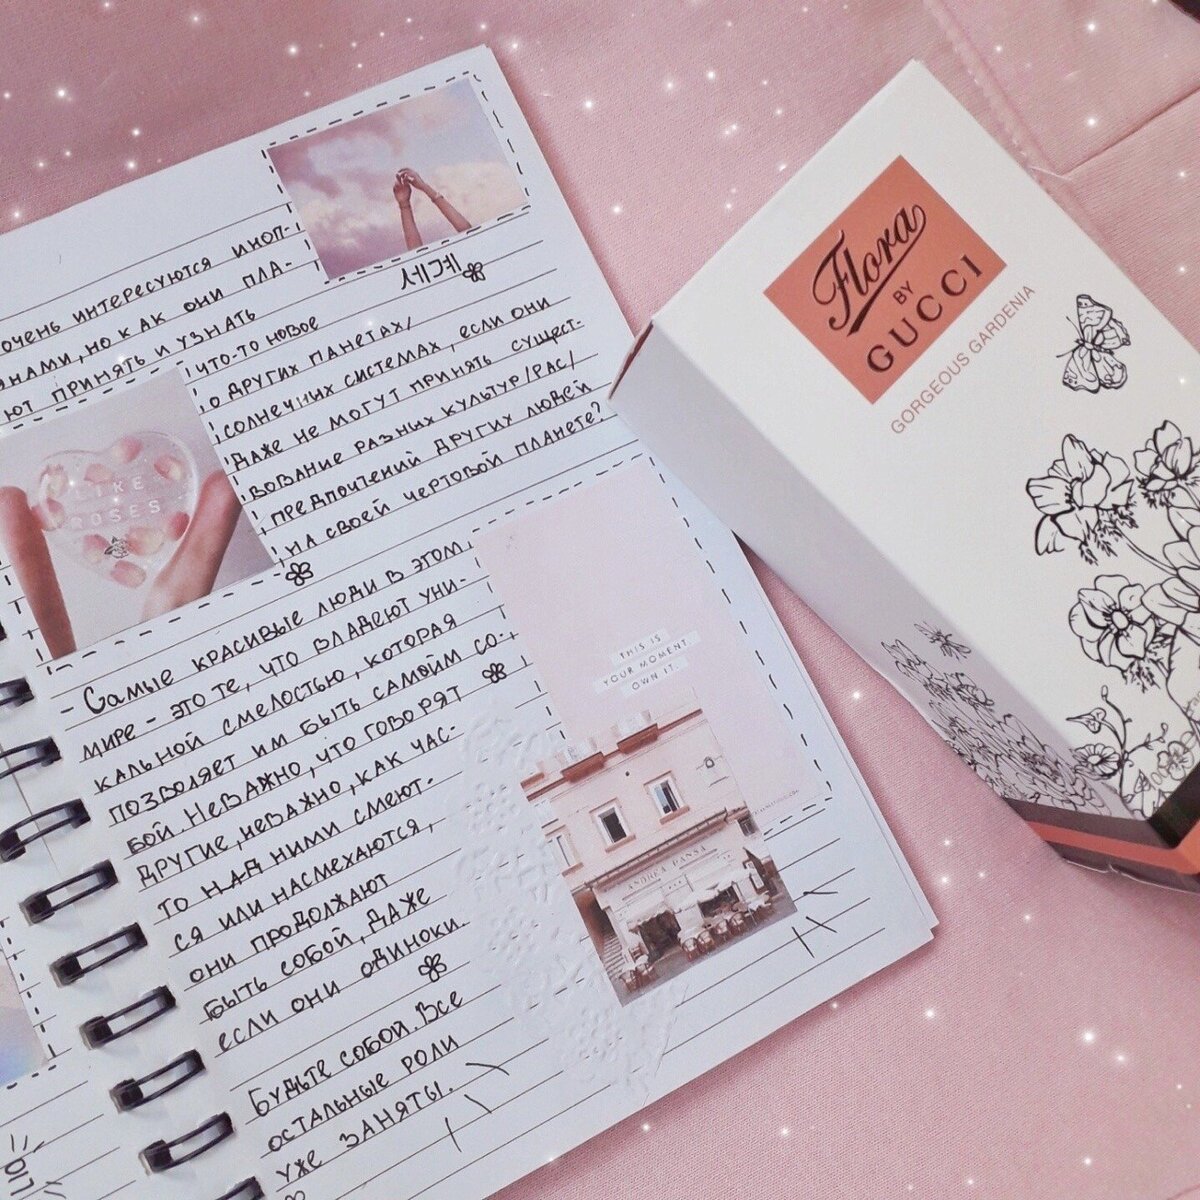 очень интересуются иноп-
янами, но как они пла-
ют принять и узнать
что-то новое
о других планетах/
солнечных системах, если они
даже не могут принять сущест-
вование разных культур/рас/
предпочтений других людей
на своей чертовой планете?
세계
LIKE
ROSES
- Самые красивые люди в этом
мире - это те, что владеют уни-
кальной смелостью, которая
позволяет им быть самойм со-
бой. Неважно, что говорят
другие, неважно, как час-
то над ними смеют-
ся или насмехаются,
они продолжают
быть собой, даже
если они одиноки.
Будьте собой. Все
остальные роли
уже заняты.
THIS IS
YOUR MOMENT
OWN IT.
ANDREA PANSA
Flora
BY
GUCCI
GORGEOUS GARDENIA